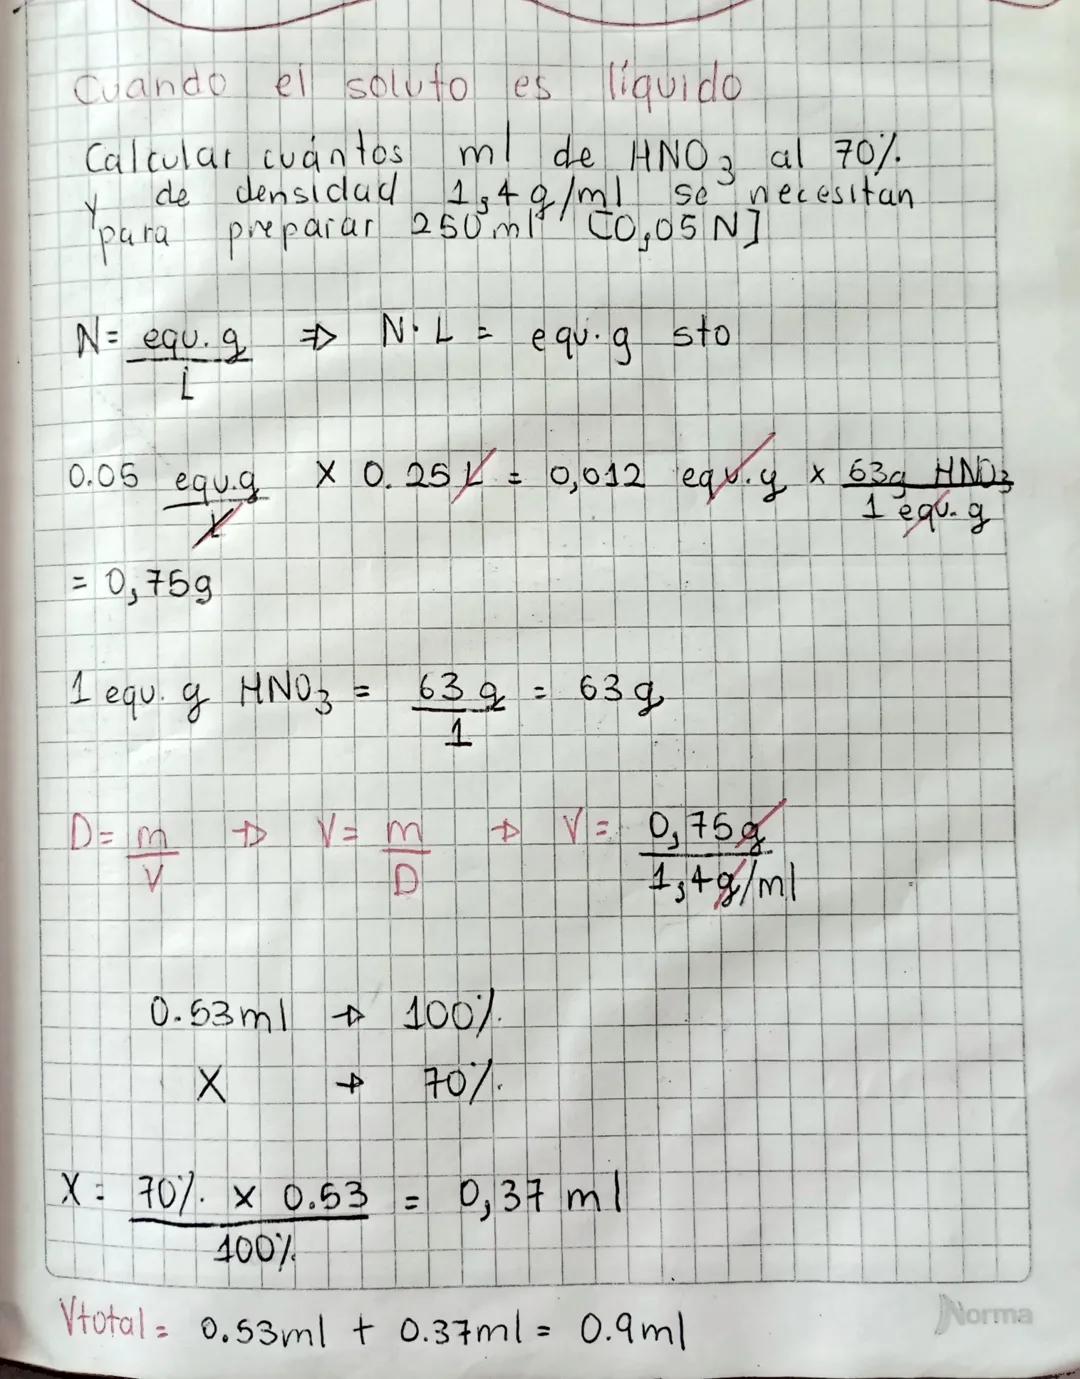 Cuando el soluto es líquido
Calcular cuántos ml de HNO3 al 70%.
y de densidad 1,4g/ml se necesitan
para preparar 250ml [0,05N]
N= equ.g / L ⇒ N·L = equ.g sto
0.05 equ.g / L x 0.25 L = 0,012 equ.g x 63g HNO3 / 1 equ.g
= 0,75g
1 equ.g HNO3 = 63g / 1 = 63g
D= m / V → V= m / D → V= 0,75g / 1,4g/ml
0.53ml → 100%.
X → 70%.
X= 70%. x 0.53 / 100% = 0,37 ml
Vtotal= 0.53ml + 0.37ml = 0.9ml
Norma